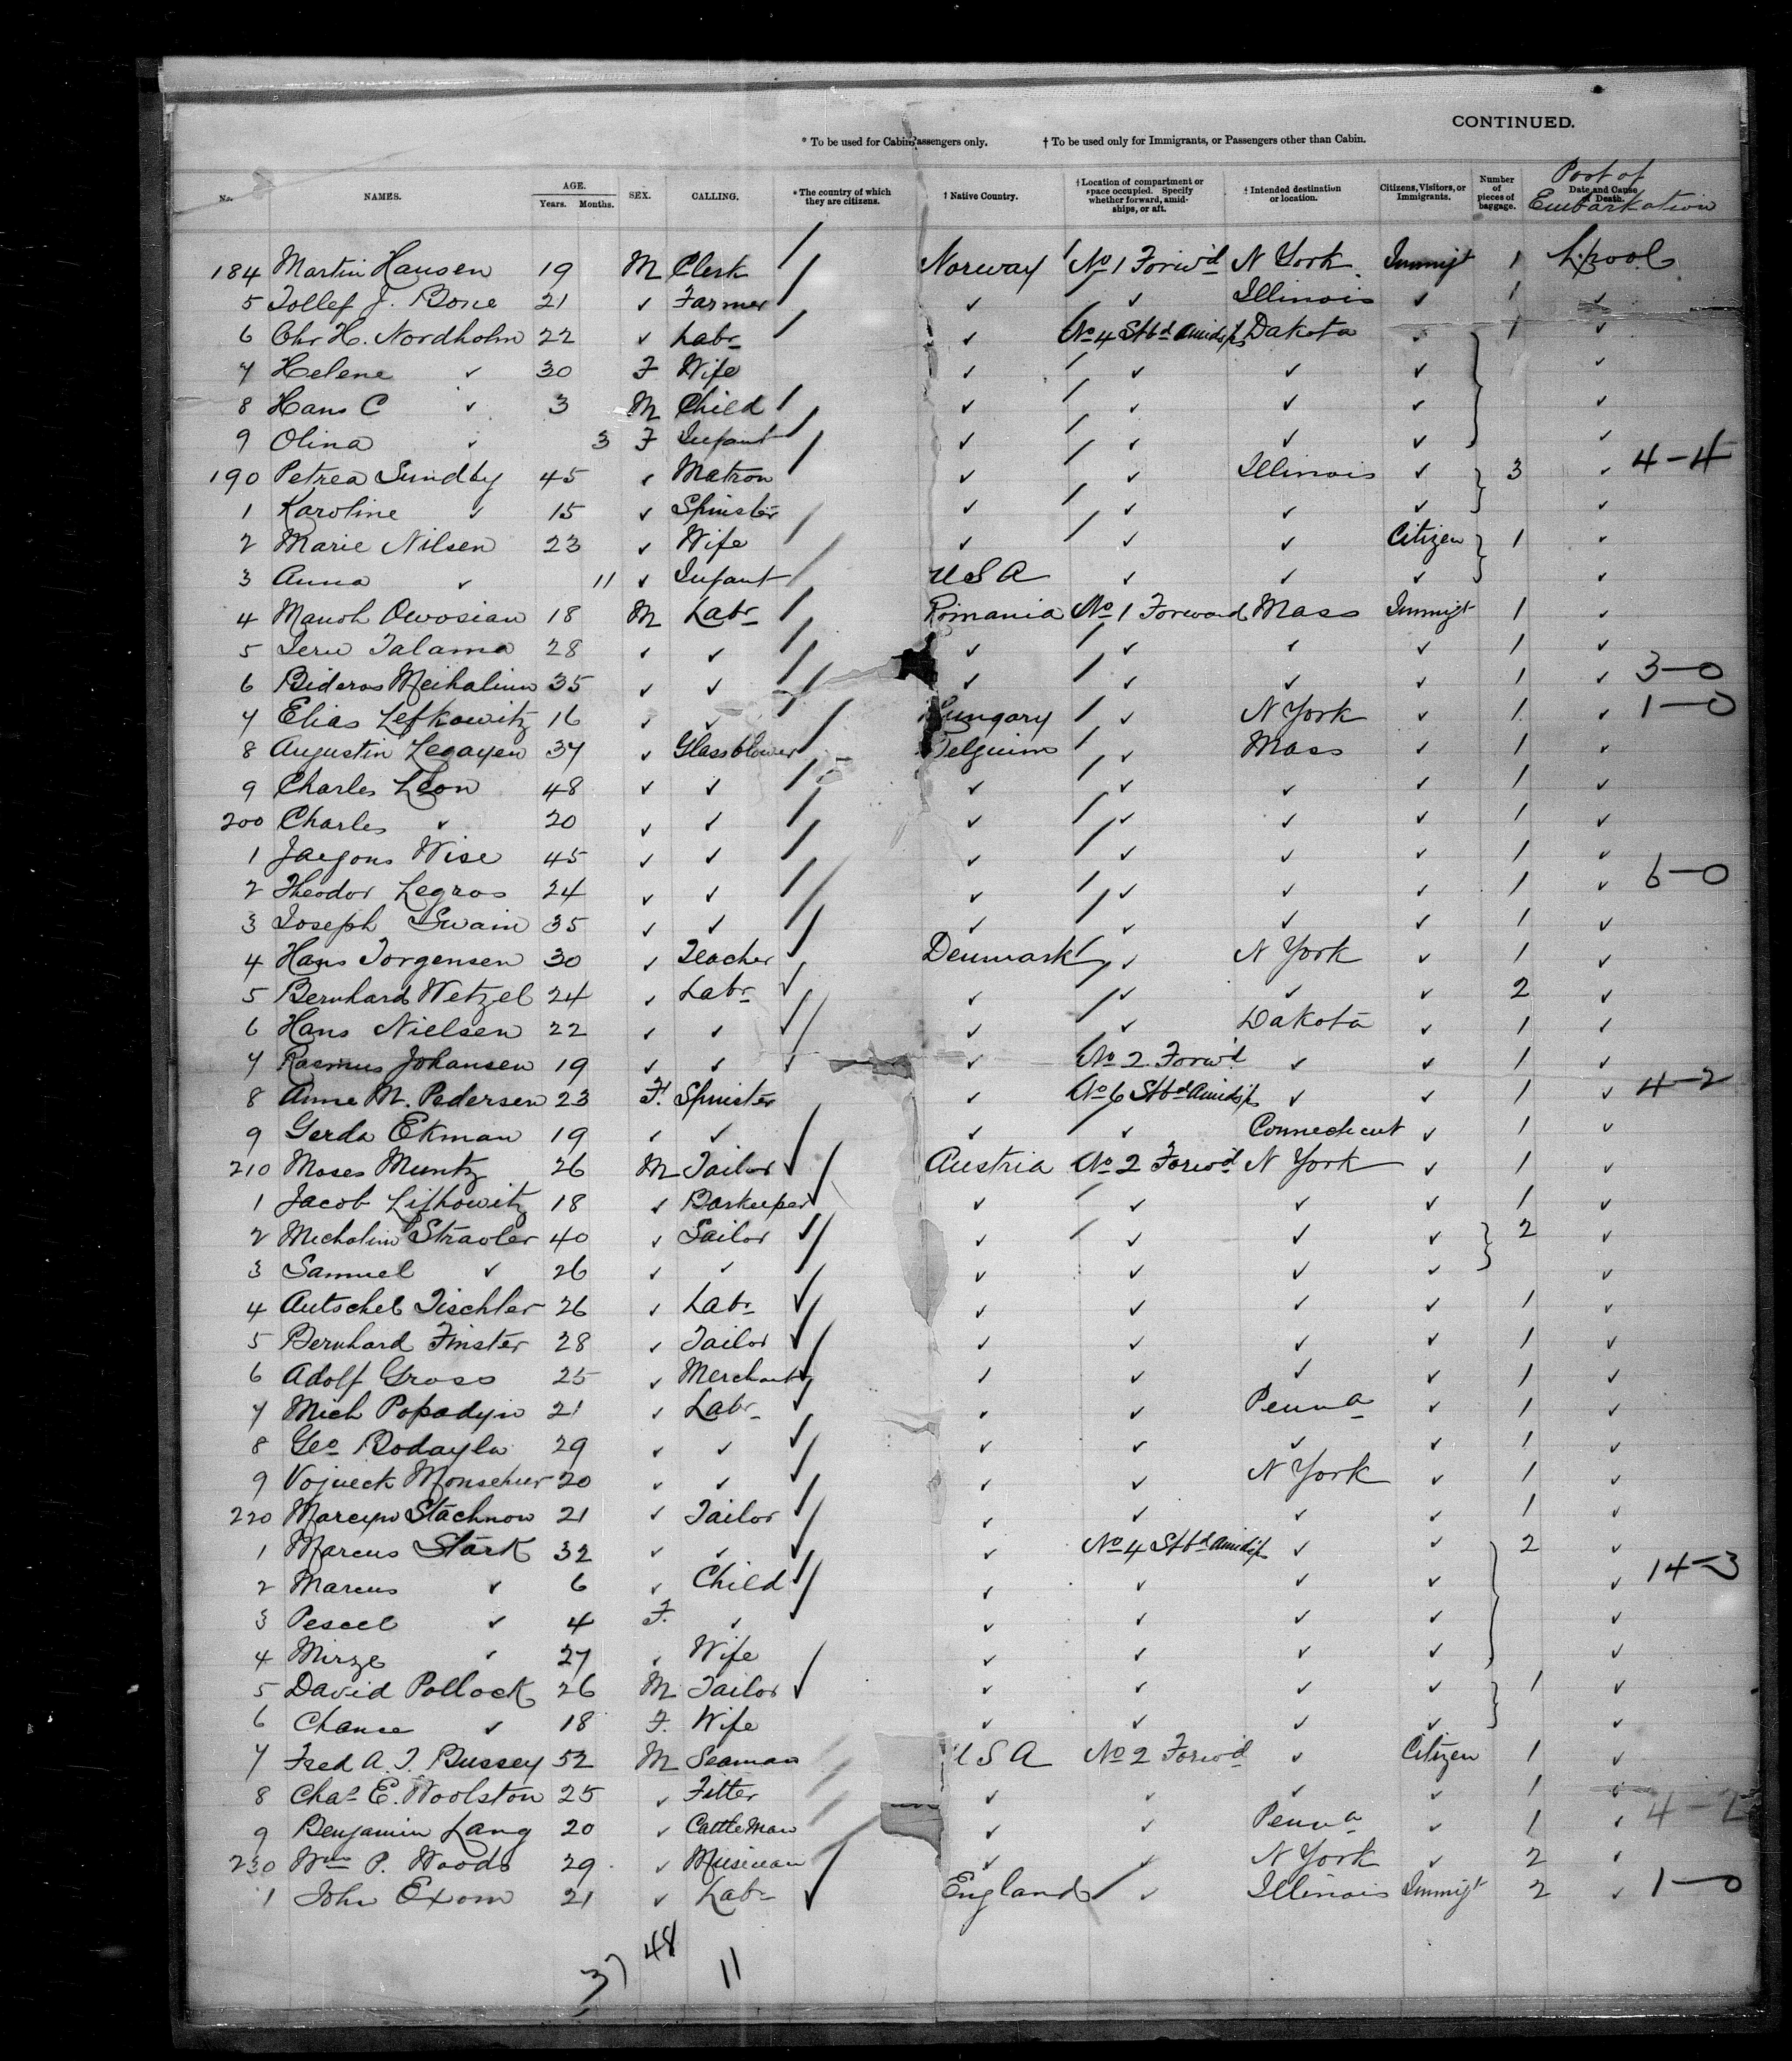 CONTINUED.
* To be used for Cabin Passengers only. † To be used only for Immigrants, or Passengers other than Cabin.
Port of Embarkation
No. NAMES. AGE. Years. Months. SEX. CALLING. * The country of which they are citizens. † Native Country. † Location of compartment or space occupied. Specify whether forward, amidships, or aft. † Intended destination or location. Citizens, Visitors, or Immigrants. Number of pieces of baggage. Date and Cause of Death.
184 Martin Hansen 19 M Clerk / Norway No 1 Forw'd N York Immigt 1 L'pool
5 Tollef J. Bone 21 ✓ Farmer / ✓ ✓ Illinois ✓ 1 ✓
6 Chr H. Nordholm 22 ✓ Labr / ✓ No 4 Stbd Amidsps Dakota ✓ 1 ✓
7 Helene ✓ 30 F Wife ✓ ✓ ✓ ✓ ✓
8 Hans C ✓ 3 M Child / ✓ ✓ ✓ ✓ ✓
9 Olina ✓ 3 F Infant / ✓ ✓ ✓ ✓ ✓ 4-4
190 Petrea Sundby 45 ✓ Matron / ✓ ✓ Illinois ✓ 3 ✓
1 Karoline ✓ 15 ✓ Spinster / ✓ ✓ ✓ ✓ ✓
2 Marie Nilsen 23 ✓ Wife / ✓ ✓ ✓ Citizen 1 ✓
3 Anna ✓ 11 ✓ Infant / USA ✓ ✓ ✓ ✓
4 Manoh Owosian 18 M Labr / Romania No 1 Forward Mass Immigt 1 ✓
5 Talama 28 ✓ ✓ / ✓ ✓ ✓ ✓ 1 ✓
6 Bideros Meihalinu 35 ✓ ✓ / ✓ ✓ ✓ ✓ 1 ✓ 3-0
7 Elias Lefkowitz 16 ✓ ✓ / Hungary ✓ N York ✓ 1 ✓ 1-0
8 Augustin Legayen 37 ✓ Glassblower / Belguim ✓ Mass ✓ 1 ✓
9 Charles Leon 48 ✓ ✓ / ✓ ✓ ✓ ✓ 1 ✓
200 Charles ✓ 20 ✓ ✓ / ✓ ✓ ✓ ✓ 1 ✓
1 Jaegons Wise 45 ✓ ✓ / ✓ ✓ ✓ ✓ 1 ✓
2 Theodor Legros 24 ✓ ✓ / ✓ ✓ ✓ ✓ 1 ✓ 6-0
3 Joseph Swain 35 ✓ ✓ / ✓ ✓ ✓ ✓ 1 ✓
4 Hans Jorgensen 30 ✓ Teacher / Denmark ✓ N York ✓ 1 ✓
5 Bernhard Wetzel 24 ✓ Labr ✓ ✓ ✓ ✓ ✓ 2 ✓
6 Hans Nielsen 22 ✓ ✓ / ✓ ✓ Dakota ✓ 1 ✓
7 Rasmus Johansen 19 ✓ ✓ ✓ ✓ No 2 Forw'd ✓ ✓ 1 ✓
8 Anne M. Pedersen 23 F. Spinster ✓ No 6 Stbd Amidsps ✓ ✓ 1 ✓ 4-2
9 Gerda Ekman 19 ✓ ✓ ✓ ✓ Connecticut ✓ 1 ✓
210 Moses Muntz 26 M Tailor ✓ Austria No 2 Forw'd N York ✓ 1 ✓
1 Jacob Lifkowitz 18 ✓ Barkeeper ✓ ✓ ✓ ✓ ✓ 1 ✓
2 Micholim Straoler 40 ✓ Sailor ✓ ✓ ✓ ✓ ✓ 2 ✓
3 Samuel ✓ 26 ✓ ✓ / ✓ ✓ ✓ ✓ ✓
4 Autschel Tischler 26 ✓ Labr ✓ ✓ ✓ ✓ ✓ 1 ✓
5 Bernhard Finster 28 ✓ Tailor ✓ ✓ ✓ ✓ ✓ 1 ✓
6 Adolf Gross 25 ✓ Merchant ✓ ✓ ✓ ✓ ✓ 1 ✓
7 Mich Popadyn 21 ✓ Labr ✓ ✓ ✓ Penna ✓ 1 ✓
8 Geo Bodayla 29 ✓ ✓ ✓ ✓ ✓ ✓ ✓ 1 ✓
9 Vojneck Monsehur 20 ✓ ✓ ✓ ✓ ✓ N York ✓ 1 ✓
220 Marcyn Stachnow 21 ✓ Tailor ✓ ✓ ✓ ✓ ✓ 1 ✓
1 Marcus Stark 32 ✓ ✓ ✓ ✓ No 4 Stbd Amidsps ✓ ✓ 2 ✓
2 Marcus ✓ 6 ✓ Child ✓ ✓ ✓ ✓ ✓ ✓ 14-3
3 Pescel ✓ 4 F. ✓ ✓ ✓ ✓ ✓ ✓
4 Mirze ✓ 27 ✓ Wife ✓ ✓ ✓ ✓ ✓
5 David Pollock 26 M Tailor ✓ ✓ ✓ ✓ ✓ 1 ✓
6 Chance ✓ 18 F. Wife ✓ ✓ ✓ ✓ ✓
7 Fred A. T. Bussey 52 M Seaman USA No 2 Forw'd ✓ Citizen 1 ✓
8 Chas E. Woolston 25 ✓ Fitter ✓ ✓ ✓ ✓ 1 ✓
9 Benjamin Lang 20 ✓ Cattleman ✓ ✓ Penna ✓ 1 ✓ 4-2
230 Wm P. Woods 29 ✓ Musician ✓ ✓ N York ✓ 2 ✓
1 John Exom 21 ✓ Labr ✓ England ✓ Illinois Immigt 2 ✓ 1-0
37 48 11